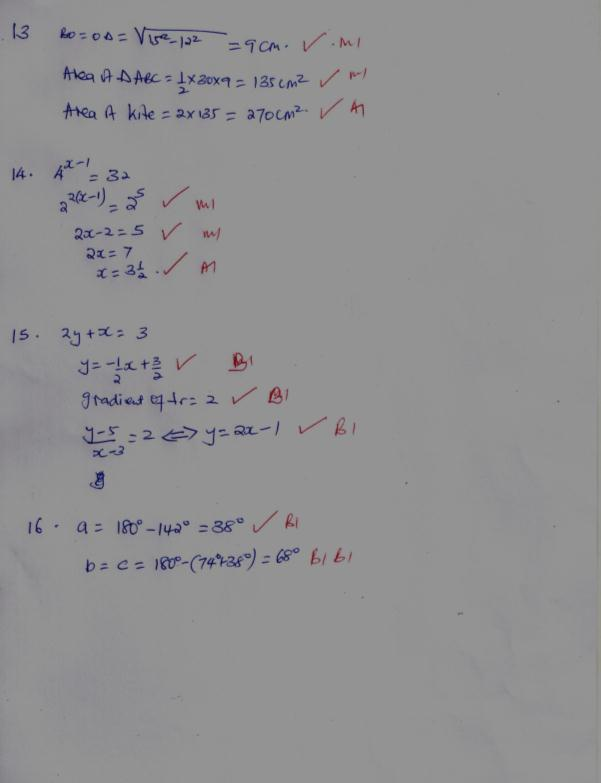 13 BO = OD = √15²-12² = 9cm. ✓ M1
Area of Δ ABC = 1/2 x 30x9 = 135cm² ✓ M1
Area of kite = 2x135 = 270cm² ✓ A1
14. 4^(x-1) = 32
2^(2(x-1)) = 2^5 ✓ M1
2x-2 = 5 ✓ M1
2x = 7
x = 3 1/2 . ✓ A1
15. 2y + x = 3
y = -1/2 x + 3/2 ✓ B1
gradient of ⊥r = 2 ✓ B1
y-5/x-3 = 2 ⟺ y = 2x-1 ✓ B1
16. a = 180° - 142° = 38° ✓ B1
b = c = 180° - (74°+38°) = 68° B1 B1